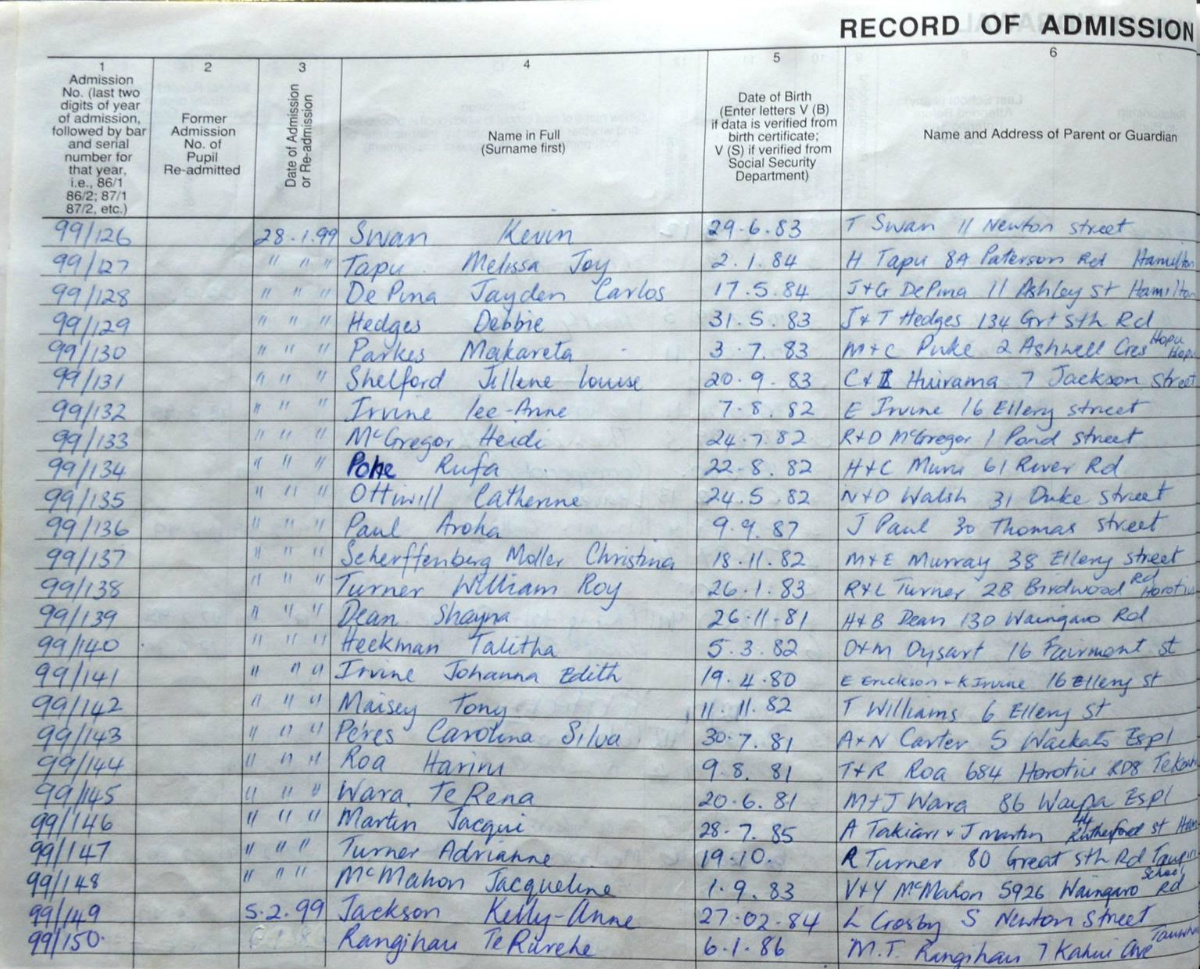 RECORD OF ADMISSION
1 2 3 4 5 6
Admission No. (last two digits of year of admission, followed by bar and serial number for that year, i.e., 86/1 86/2; 87/1 87/2, etc.)
Former Admission No. of Pupil Re-admitted
Date of Admission or Re-admission
Name in Full (Surname first)
Date of Birth (Enter letters V (B) if data is verified from birth certificate; V (S) if verified from Social Security Department)
Name and Address of Parent or Guardian
99/126 28.1.99 Swan Kevin 29.6.83 T Swan 11 Newton street
99/127 " " " Tapu Melissa Joy 2.1.84 H Tapu 8A Paterson Rd Hamilton
99/128 " " " De Pina Jayden Carlos 17.5.84 J+G DePina 11 Ashley st Hamilton
99/129 " " " Hedges Debbie 31.5.83 J+T Hedges 134 Grt sth Rd
99/130 " " " Parkes Makareta 3.7.83 M+C Puke 2 Ashwell Cres Hopu
99/131 " " " Shelford Jillene louise 20.9.83 C+I Huirama 7 Jackson street
99/132 " " " Irvine lee-Anne 7.8.82 E Irvine 16 Ellery street
99/133 " " " McGregor Heidi 24.7.82 R+D McGregor 1 Pond street
99/134 " " " Poke Rufa 22.8.82 H+C Muru 61 River Rd
99/135 " " " Ottwill Catherine 24.5.82 N+D Walsh 31 Duke street
99/136 " " " Paul Aroha 9.9.87 J Paul 30 Thomas street
99/137 " " " Scherffenberg Moller Christina 18.11.82 M+E Murray 38 Ellery street
99/138 " " " Turner William Roy 26.1.83 R+L Turner 2B Birdwood Rd Horotiu
99/139 " " " Dean Shayna 26.11.81 H+B Dean 130 Waingaro Rd
99/140 " " " Heckman Talitha 5.3.82 D+M Dysart 16 Fairmont st
99/141 " " " Irvine Johanna Edith 19.4.80 E Erickson + K Irvine 16 Ellery st
99/142 " " " Maisey Tony 11.11.82 T Williams 6 Ellery St
99/143 " " " Peres Carolina Silva 30.7.81 A+N Carter 5 Waikato Espl
99/144 " " " Roa Harini 9.8.81 T+R Roa 684 Horotiu RD8
99/145 " " " Wara Te Rena 20.6.81 M+J Wara 86 Waipa Espl
99/146 " " " Martin Jacqui 28.7.85 A Takiari + J martin 44 Rutherford st Ham
99/147 " " " Turner Adrianne 19.10. R Turner 80 Great sth Rd Taupiri
99/148 " " " McMahon Jacqueline 1.9.83 V+Y McMahon 5926 Waingaro Rd
99/149 5.2.99 Jackson Kelly-Anne 27.02.84 L Crosby 5 Newton Street
99/150. Rangihau Te Rurehe 6.1.86 M.T. Rangihau 7 Kahui Ave